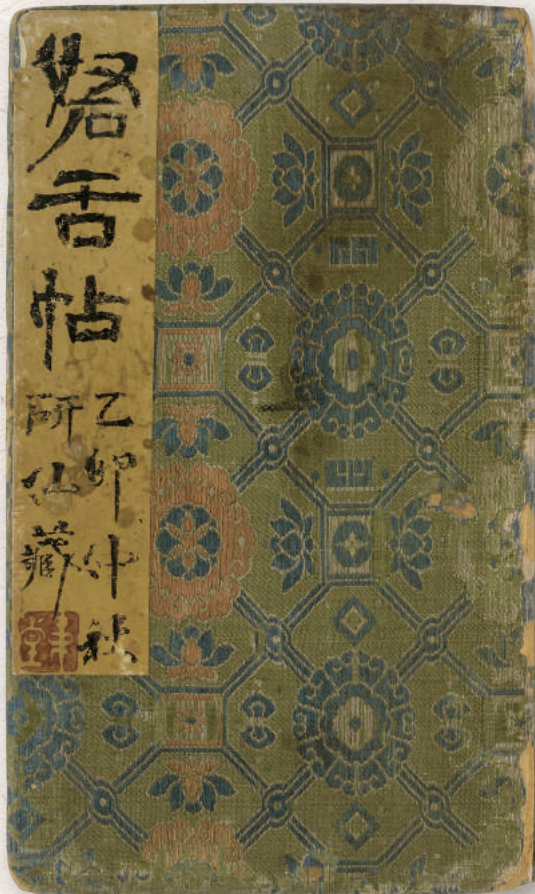 砮舌帖
乙卯仲秋
研仙藏